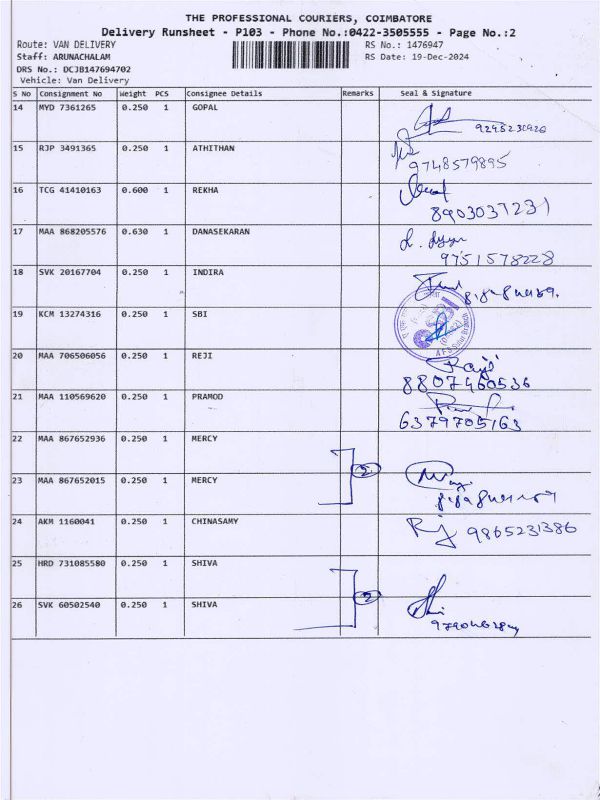 THE PROFESSIONAL COURIERS, COIMBATORE
Delivery Runsheet - P103 - Phone No.:0422-3505555 - Page No.:2
Route: VAN DELIVERY RS No.: 1476947
Staff: ARUNACHALAM RS Date: 19-Dec-2024
DRS No.: DCJB147694702
Vehicle: Van Delivery
S No Consignment No Weight PCS Consignee Details Remarks Seal & Signature
14 MYD 7361265 0.250 1 GOPAL
15 RJP 3491365 0.250 1 ATHITHAN
9748579895
16 TCG 41410163 0.600 1 REKHA
8903037231
17 MAA 868205576 0.630 1 DANASEKARAN
9751578228
18 SVK 20167704 0.250 1 INDIRA
19 KCM 13274316 0.250 1 SBI
20 MAA 706506056 0.250 1 REJI
8807460536
21 MAA 110569620 0.250 1 PRAMOD
6379705163
22 MAA 867652936 0.250 1 MERCY
2
23 MAA 867652015 0.250 1 MERCY
24 AKM 1160041 0.250 1 CHINASAMY
9865231386
25 HRD 731085580 0.250 1 SHIVA
2
26 SVK 60502540 0.250 1 SHIVA